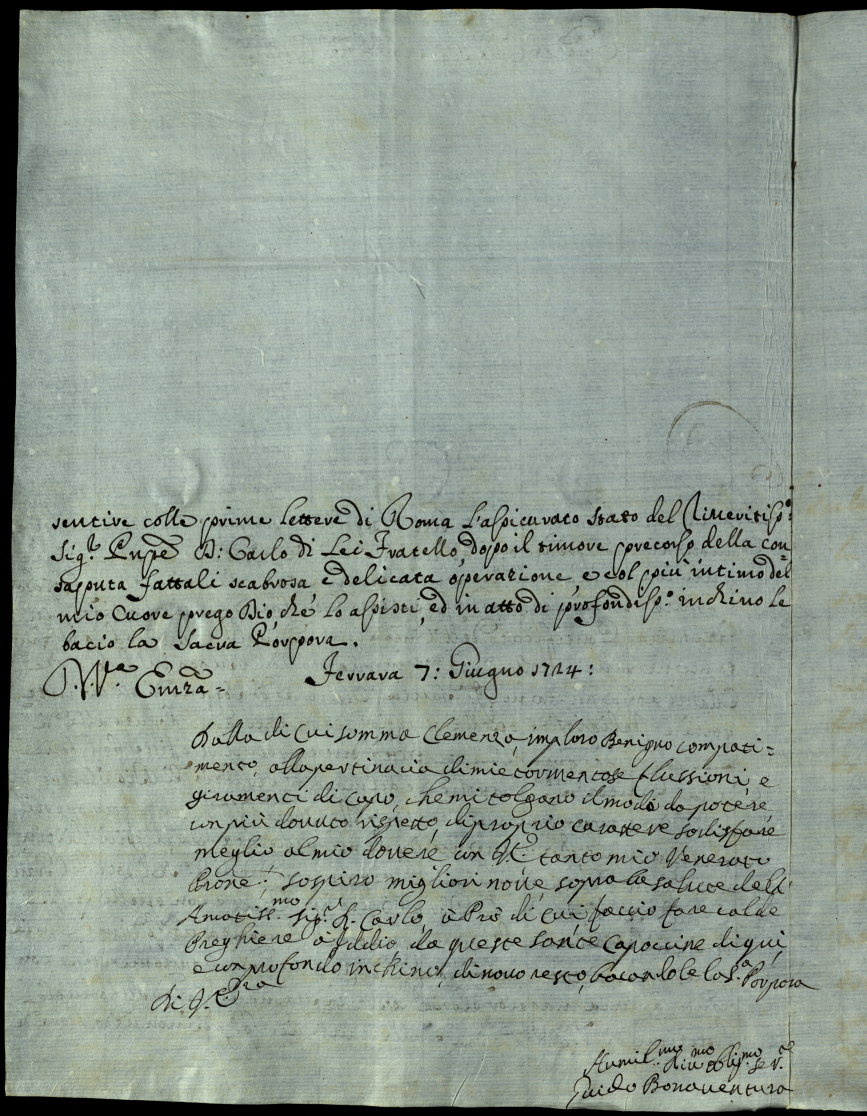 sentire colle prime lettere di Roma l'assicurato stato del Riveritiss.º
Sig.r D: Carlo di Lei Fratello, dopo il timore precorso della con
saputa fattali scabrosa e delicata operazione, e col più intimo del
mio Cuore prego Dio, che lo assisti, ed in atto di profondiss.º inchino le
bacio la Sacra Porpora.
Ferrara 7: Giugno 1724:
Di V.ra Emza =
Dalla di cui somma Clemenza, imploro Benigno compati=
mento, alla pertinacia di mie tormentose flussioni, e
giramenti di capo, che mi tolgano il modo da potere
con più dovuto rispetto, di proprio carattere sodisfare
meglio al mio dovere con V.E. tanto mio Venerato
Prone.; sospiro migliori nove, sopra la salute dell'
Amatiss.mo Sig.r D. Carlo, à Prò di cui faccio fare calde
Preghiere à Iddio da queste Sante Capoccine di quì
e con profondo inchino, di novo resto, baciandole la S.a Porpora
Di V.E.
Humil.mo Div.mo Oblig.mo Se.r
Guido Bonaventura